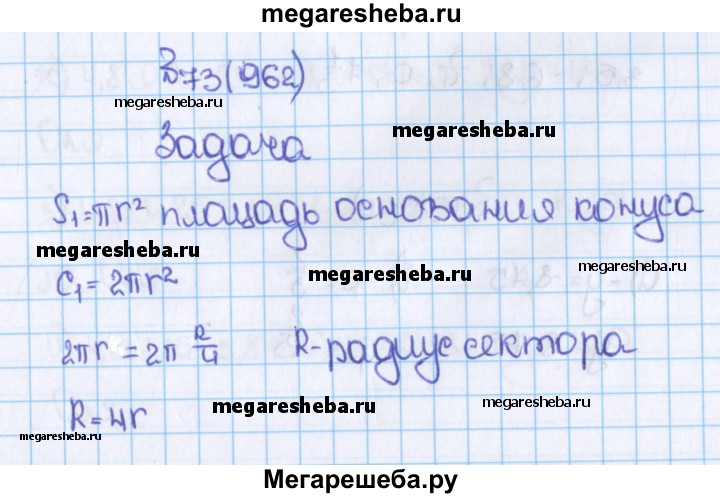 megaresheba.ru
З.73(962)
megaresheba.ru
Задача
megaresheba.ru
S₁=πr² площадь основания конуса
megaresheba.ru
C₁=2πr²
megaresheba.ru
megaresheba.ru
2πr=2π R/4 R-радиус сектора
R=4r
megaresheba.ru
megaresheba.ru
megaresheba.ru
Мегарешеба.ру